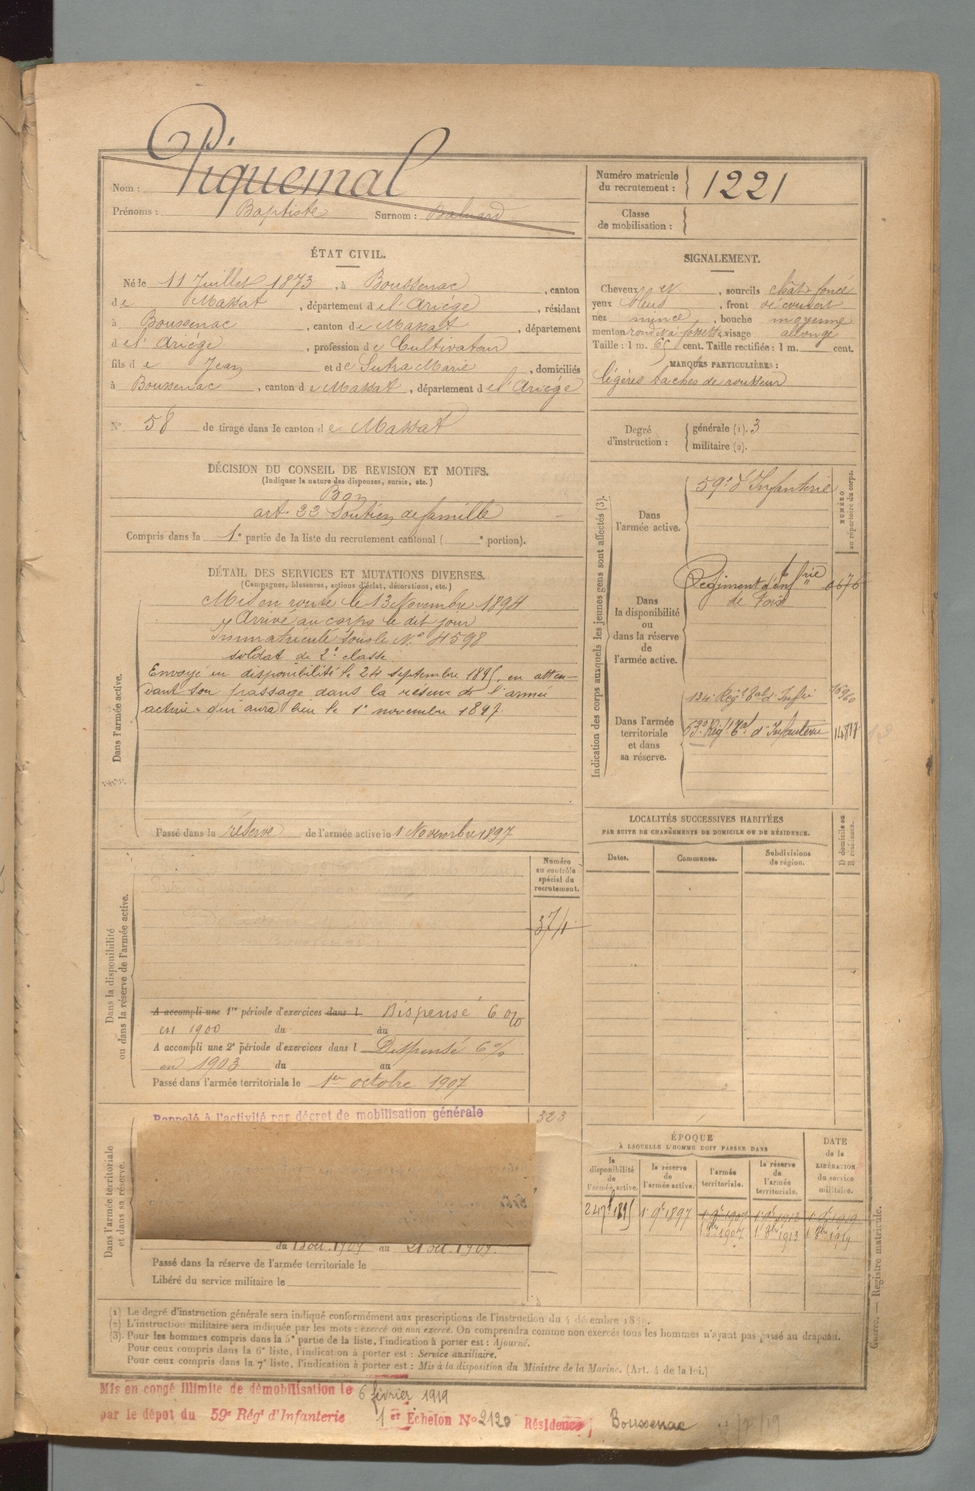 Nom : Piquemal
Prénoms : Baptiste Surnom :
Numéro matricule du recrutement : 1221
Classe de mobilisation :
ÉTAT CIVIL.
Né le 11 Juillet 1873, à Boussenac, canton
de Massat, département de l'Ariège, résidant
à Boussenac, canton de Massat, département
de l'Ariège, profession de Cultivateur
fils de Jean et de Sutra Marie, domiciliés
à Boussenac, canton de Massat, département de l'Ariège
N° 58 de tirage dans le canton de Massat
SIGNALEMENT.
Cheveux et, sourcils chât. foncé
yeux bleus, front découvert
nez mince, bouche moyenne
menton rond à fossette, visage allongé
Taille : 1 m. 65 cent. Taille rectifiée : 1 m. cent.
MARQUES PARTICULIÈRES :
légères taches de rousseur
Degré d'instruction : générale (1). 3
militaire (2).
DÉCISION DU CONSEIL DE REVISION ET MOTIFS.
(Indiquer la nature des dispenses, sursis, etc.)
Bon
art. 22 Soutien de famille
Compris dans la 1e partie de la liste du recrutement cantonal ( e portion).
DÉTAIL DES SERVICES ET MUTATIONS DIVERSES.
(Campagnes, blessures, actions d'éclat, décorations, etc.)
Dans l'armée active.
Mis en route le 13 Novembre 1894
Arrivé au corps le dit jour
Immatriculé sous le N° 4598
soldat de 2e classe
Envoyé en disponibilité le 24 septembre 1895, en atten-
dant son passage dans la réserve de l'armée
active qui aura lieu le 1er novembre 1897
Passé dans la réserve de l'armée active le 1 Novembre 1897
Indication des corps auxquels les jeunes gens sont affectés (3).
NUMÉRO au répertoire du corps.
Dans l'armée active.
59e d'Infanterie
Dans la disponibilité ou dans la réserve de l'armée active.
Régiment d'inf frie
de Foix
Dans l'armée territoriale et dans sa réserve.
134e Régt Tal d'Infie
53e Régt Tal d'Infanterie
LOCALITÉS SUCCESSIVES HABITÉES
PAR SUITE DE CHANGEMENTS DE DOMICILE OU DE RÉSIDENCE.
Dates. Communes. Subdivisions de région.
D domicile ou R résidence.
Dans la disponibilité ou dans la réserve de l'armée active.
Numéro au contrôle spécial du recrutement.
A accompli une 1re période d'exercices dans l Dispensé 6 0/0
en 1900 du au
A accompli une 2e période d'exercices dans l Dispensé 6 0/0
en 1903 du au
Passé dans l'armée territoriale le 1er octobre 1907
Rappelé à l'activité par décret de mobilisation générale
323
Dans l'armée territoriale et dans sa réserve.
au
Passé dans la réserve de l'armée territoriale le
Libéré du service militaire le
ÉPOQUE
À LAQUELLE L'HOMME DOIT PASSER DANS
la disponibilité de l'armée active.
la réserve de l'armée active.
l'armée territoriale.
la réserve de l'armée territoriale.
DATE de la LIBÉRATION du service militaire.
24 7e 1895 1er 9e 1897 1er 9e 1907
1er 8bre 1907 1er 8bre 1913 1er 8bre 1919
(1) Le degré d'instruction générale sera indiqué conformément aux prescriptions de l'instruction du 4 décembre 1889.
(2) L'instruction militaire sera indiquée par les mots : exercé ou non exercé. On comprendra comme non exercés tous les hommes n'ayant pas passé au drapeau.
(3) Pour les hommes compris dans la 5e partie de la liste, l'indication à porter est : Ajourné.
Pour ceux compris dans la 6e liste, l'indication à porter est : Service auxiliaire.
Pour ceux compris dans la 7e liste, l'indication à porter est : Mis à la disposition du Ministre de la Marine. (Art. 4 de la loi.)
Guerre. — Registre matricule.
Mis en congé illimité de démobilisation le 6 février 1919
par le dépôt du 59e Régt d'Infanterie 1er Echelon N° 2120 Résidence : Boussenac